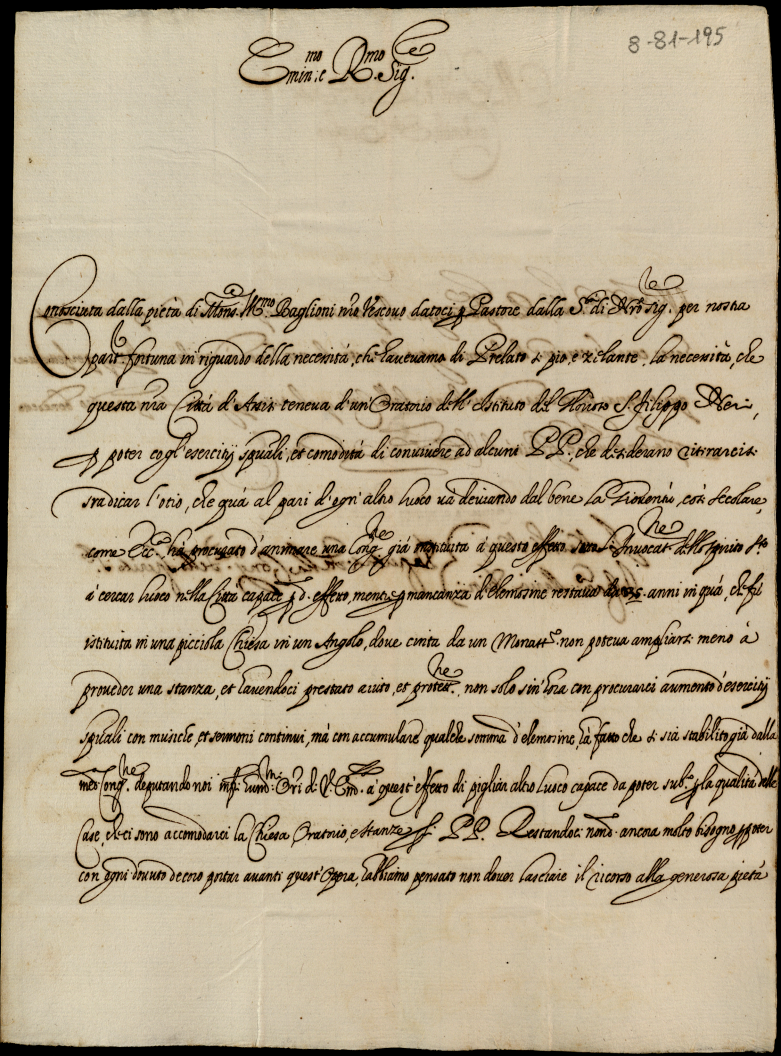 8-81-195
Emin:mo e R.mo Sig.re
Conosciuta dalla pietà di Mons. Ill.mo Baglioni nro Vescovo datoci p Pastore dalla S.tà di Nro Sig.re per nostra
part.re fortuna in riguardo della necessità, che havevamo di Prelato sì pio, e zelante, la necessità, che
questa nra Città d'Assisi teneva d'un'Oratorio dell'Istituto del Glorioso S. Filippo Neri,
p poter cogl'esercitij spuali, et comodità di convivere ad alcuni PP., che desiderano ritirarcisi
sradicar l'otio, che quà al pari d'ogn'altro luoco và deviando dal bene la Gioventù, così secolare,
come Ecc.ca, hà procurato d'animare una Cong.ne già instituita à questo effetto sotto l'Invocat.ne dello Spirito S.to
à cercar luoco nella Città capace p d.o effetto, mentre p mancanza d'elemosine restava da anni in quà, che fù
istituita in una picciola Chiesa in un Angolo, dove cinta da un Monast.o non poteva ampliarsi meno à
proveder una stanza, et havendoci prestato aiuto, et protett.ne, non solo sin'hora con procurarci aumento d'esercitij
spuali con musiche, et sermoni continui, mà con accumulare qualche somma d'elemosine, hà fatto che si sia stabilito già dalla
med.a Cong.ne, deputando noi inf.ti hum.mi Ser.ri di V. Em.za à quest'effetto di pigliar altro luoco capace da poter sub.o p la qualità delle
Case, che ci sono accomodarci la Chiesa, Oratorio, e stanze p li PP. Restandoci nond.o ancora molto bisogno p poter
con ogni dovuto decoro portar avanti quest'Opera, habbiamo pensato non dover lasciare il ricorso alla generosa pietà